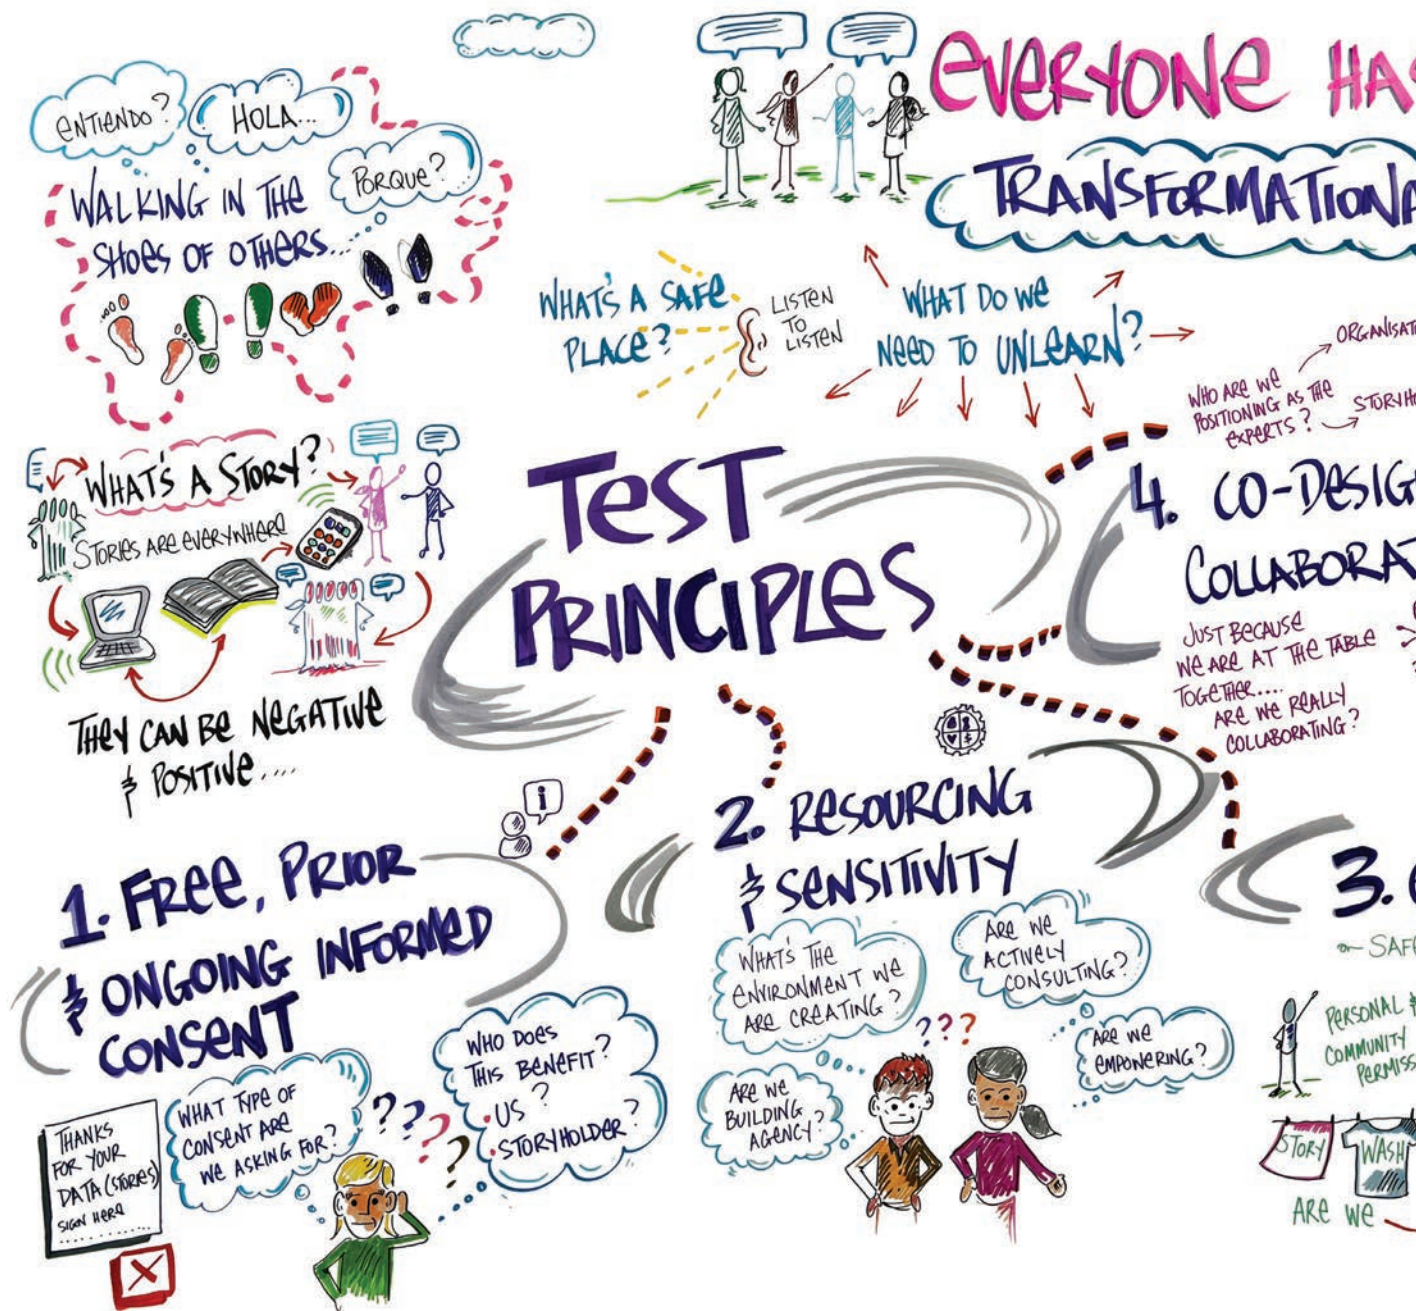 ENTIENDO?
HOLA...
PORQUE?
WALKING IN THE
SHOES OF OTHERS...
EVERYONE HAS
TRANSFORMATIONA
WHAT'S A SAFE
PLACE?
LISTEN
TO
LISTEN
WHAT DO WE
NEED TO UNLEARN?
WHO ARE WE
POSITIONING AS THE
EXPERTS?
ORGANISAT
STORYHO
WHAT'S A STORY?
STORIES ARE EVERYWHERE
THEY CAN BE NEGATIVE
& POSITIVE....
TEST
PRINCIPLES
4. CO-DESIG
COLLABORAT
JUST BECAUSE
WE ARE AT THE TABLE
TOGETHER....
ARE WE REALLY
COLLABORATING?
i
1. FREE, PRIOR
& ONGOING INFORMED
CONSENT
THANKS
FOR YOUR
DATA (STORIES)
SIGN HERE
............
WHAT TYPE OF
CONSENT ARE
WE ASKING FOR?
????
WHO DOES
THIS BENEFIT?
• US ?
• STORYHOLDER?
2. RESOURCING
& SENSITIVITY
WHAT'S THE
ENVIRONMENT WE
ARE CREATING?
ARE WE
ACTIVELY
CONSULTING?
???
ARE WE
BUILDING
AGENCY?
ARE WE
EMPOWERING?
3.
SAFE
PERSONAL &
COMMUNITY
PERMISS
STORY
WASH
ARE WE